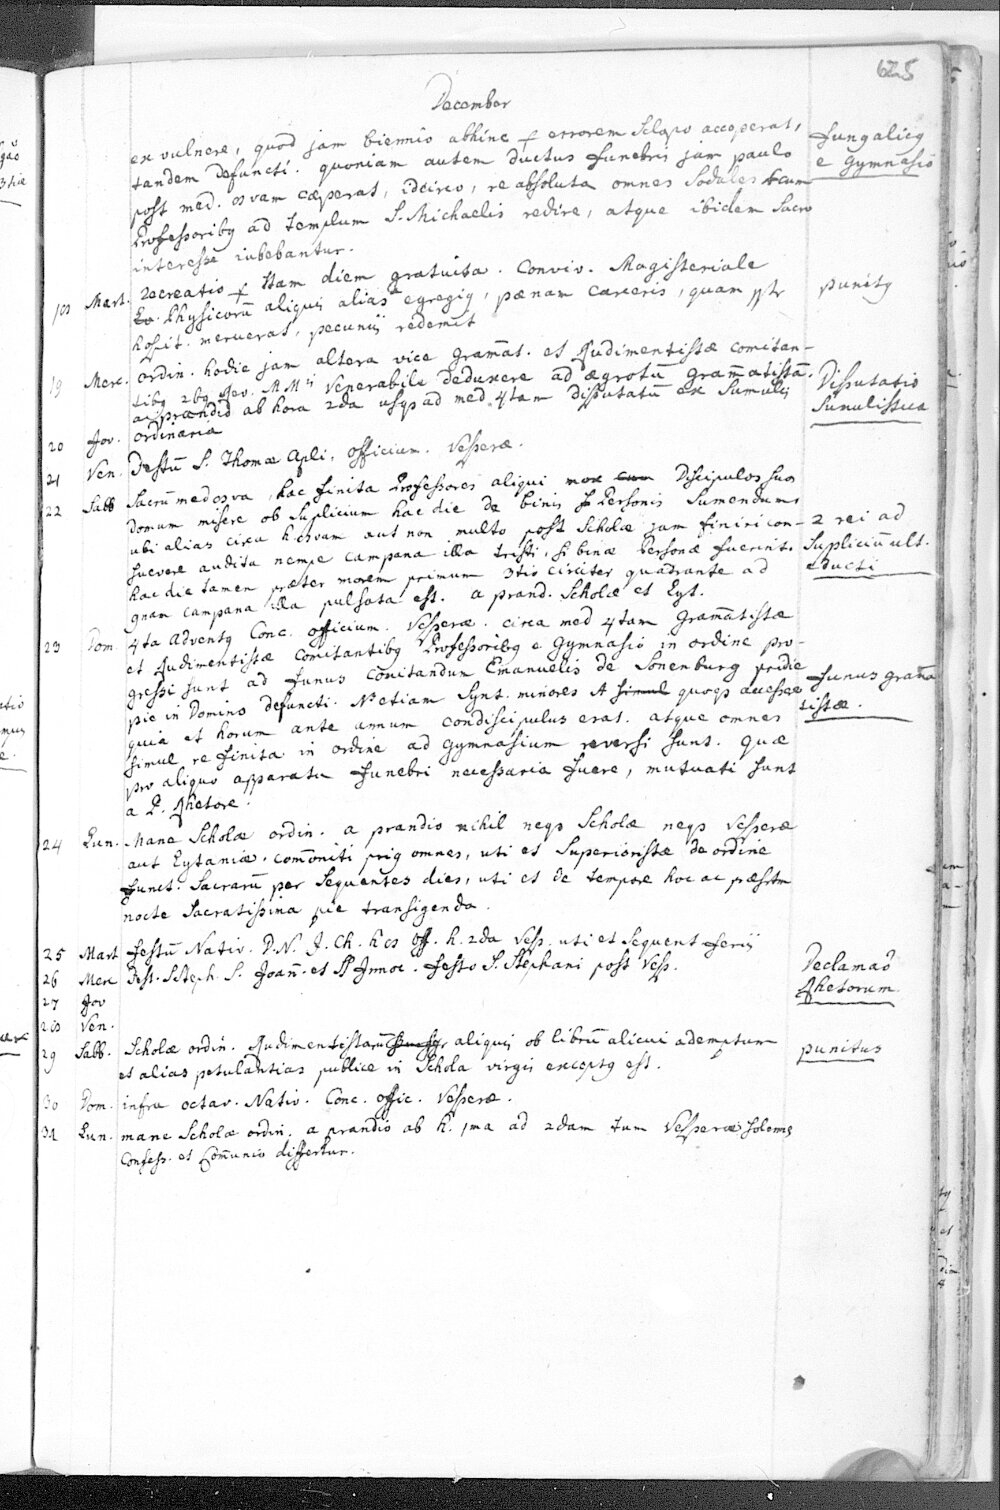 625
December
ex vulnere, quod jam biennio abhinc p errorem Sclopo acceperat,
tandem defuncti. quoniam autem ductus funebris jam paulo
post med. osvam cæperat, idcirco, re absoluta omnes Sodales cum
Professoribq ad templum S. Michaelis redire, atque ibidem Sacro
interesse iubebantur.
e Gymnasio
Mart. recreatio p ttam diem gratuita. Conviv. Magisteriale
Physicorũ aliquis alias egregiq, pænam carceris, quam
hospit. meruerat, pecuniis redemit
punitq
19 Merc. ordin. hodie jam altera vice gramãt. et Rudimentistæ comitan-
tibq 2bq Rev. MMis Venerabile deduxere ad ægrotũ gram̃atistã.
a prandio ab hora 2da usqs ad med 4tam disputatũ ex Sumulis
Disputatio
Sumulistica
20 Jov. ordinaria
21 Ven. Festũ S. Thomæ Apli, officium. Vesperæ.
22 Sabb Sacrũ med osva, hac finita Professores aliqui Discipulos suos
domum misere ob Suplicium hac die de binis Personis Sumendum
ubi alias circa hosvam aut non multo post Scholæ jam finiri con-
suevere audita nempe campana illa tristi, si binæ Personæ fuerint.
hac die tamen præter morem primum 3tio circiter quadrante ad
quam campana illa pulsata est. a prand. Scholæ et Lyt.
2 rei ad
Supliciũ ult.
educti
23 Dom. 4ta Adventq Conc. officium. Vesperæ. circa med 4tam Gram̃atistæ
et Rudimentistæ comitantibq Professoribq e Gymnasio in ordine pro-
gressi sunt ad funus comitandum Emanuelis de Sonenburg pridie
pie in Domino defuncti. etiam Synt. minores simul quoqs
quia et horum ante annum condiscipulus erat. atque omnes
simul re finita in ordine ad Gymnasium reversi sunt. Quæ
pro aliquo apparatu funebri necessaria fuere, mutuati sunt
a P. Rhetore.
funus gram̃a
tistæ.
24 Lun. Mane Scholæ ordin. a prandio nihil neqs Scholæ neqs Vesperæ
aut Lytaniæ. com̃oniti priq omnes, uti et Superioristæ de ordine
funct. Sacrarũ per Sequentes dies, uti et de tempore hoc ac præsrtm
nocte Sacratissima pie transigenda.
25 Mart Festũ Nativ. D.N. J. Ch. Off. h. 2da Vesp. uti et Sequent feriis
26 Merc Fest. S. Steph. S. Joañ. et SS Innoc. Festo S. Stephani post Vesp.
Declamaõ
Rhetorum.
27 Jov
Ven.
29 Sabb. Scholæ ordin. Rudimentistarũ aliquis ob librũ alicui ademptum
et alias petulantias publice in Schola virgis exceptq est.
punitus
30 Dom. infra octav. Nativ. Conc. offic. Vesperæ.
31 Lun. mane Scholæ ordin. a prandio ab h. 1ma ad 2dam tum Vesperæ solemes
Confess. et Com̃unio differtur.